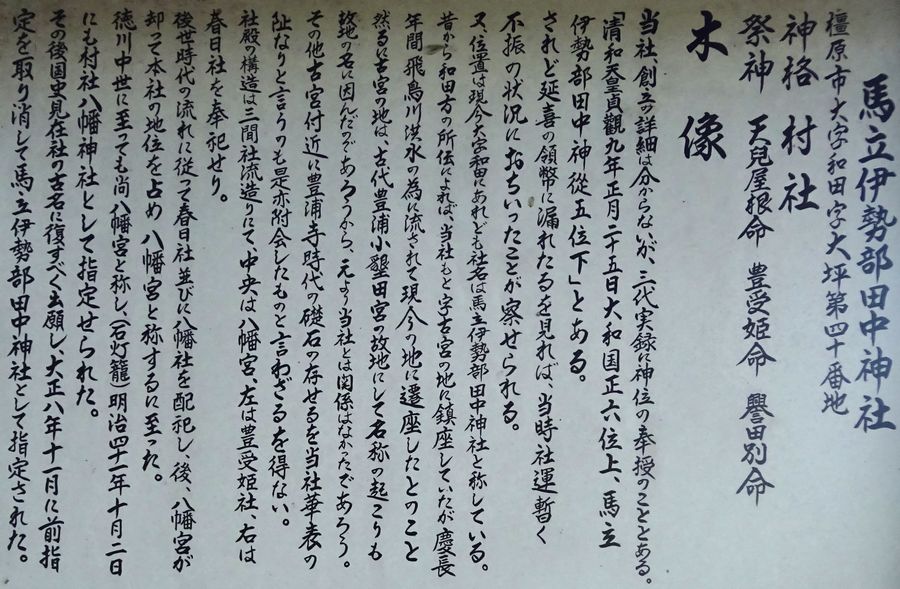 馬立伊勢部田中神社
橿原市大字和田字大坪第四十番地
神格 村社
祭神 天兒屋根命 豊受姫命 譽田別命
木像
当社、創立の詳細は分からないが、三代実録に神位の奉授のこととある。
「清和天皇貞觀九年正月二十五日大和国正六位上、馬立
伊勢部田中神從五位下」とある。
されど延喜の領幣に漏れたるを見れば、当時社運暫く
不振の状況におちいったことが察せられる。
又、位置は現今大字和田にあれども社名は馬立伊勢部田中神社と称している。
昔から和田方の所伝によれば、当社もと字古宮の地に鎮座していたが慶長
年間飛鳥川洪水の為に流されて現今の地に遷座したとのこと
然るに古宮の地は、古代豊浦小墾田宮の故地にして名称の起こりも
故地の名に因んだのであろうから、元より当社とは関係はなかったであろう。
その他古宮付近に豊浦寺時代の礎石の存せるを当社華表の
趾なりと言うのも是亦附会したものと言わざるを得ない。
社殿の構造は三間社流造りにて、中央は八幡宮、左は豊受姫社、右は
春日社を奉祀せり。
後世時代の流れに従って春日社並びに八幡社を配祀し、後、八幡宮が
却って本社の地位を占め 八幡宮と称するに至った。
徳川中世に至っても尚八幡宮と称し、(石灯籠)明治四十一年十月二日
にも村社八幡神社として指定せられた。
その後国史見在社の古名に復すべく出願し、大正八年十一月に前指
定を取り消して馬立伊勢部田中神社として指定された。